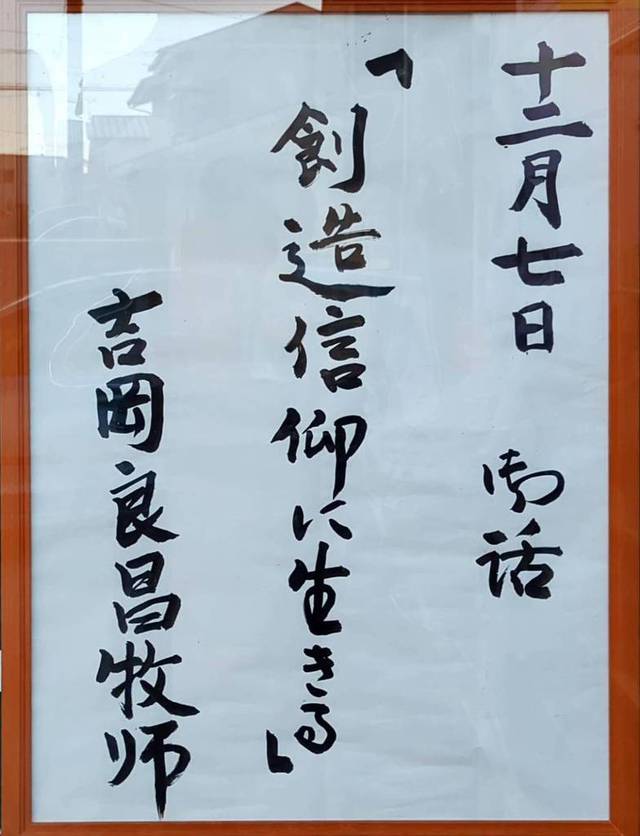 十二月七日 御話
「創造信仰に生きる」
吉岡良昌牧师